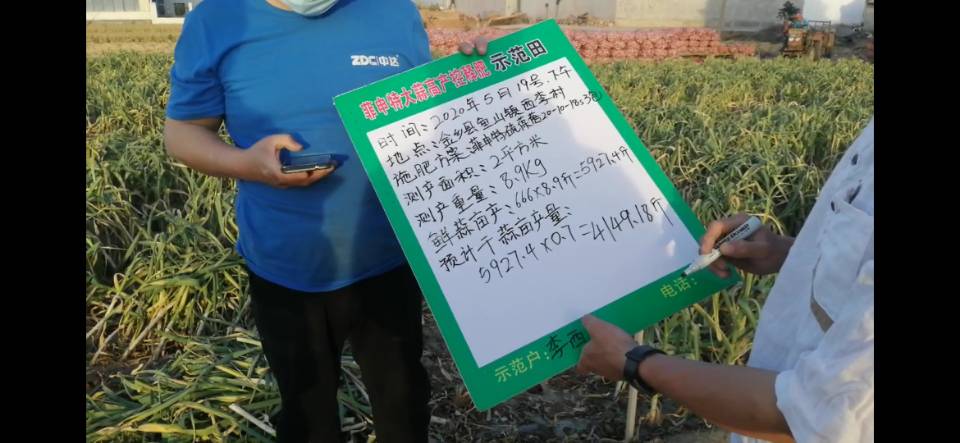 ZDC中达
菲申特大蒜高产控释肥 示范田
时间：2020年5月19号.下午
地点：金乡县鱼山镇西李村
施肥方案：菲申特硫膏苞20-10-18S3包
测产面积：2平方米
测产重量：8.9Kg
鲜蒜亩产：666×8.9斤=5927.4斤
预计干蒜亩产量：
5927.4×0.7=4149.18斤
示范户：李西
电话：